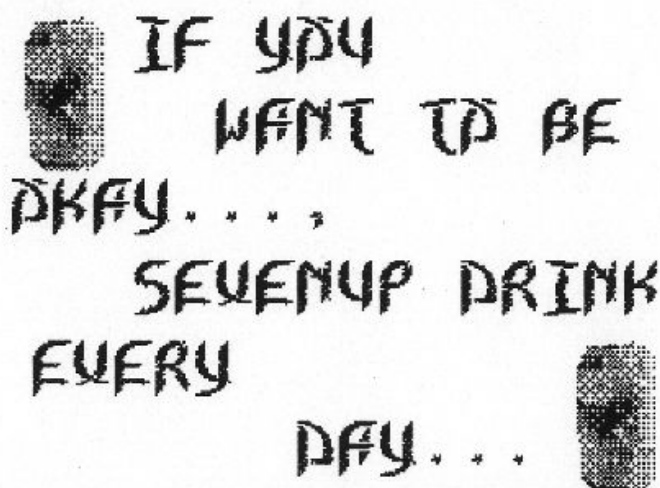 IF YOU
WANT TO BE
OKAY....,
SEVENUP DRINK
EVERY
DAY...